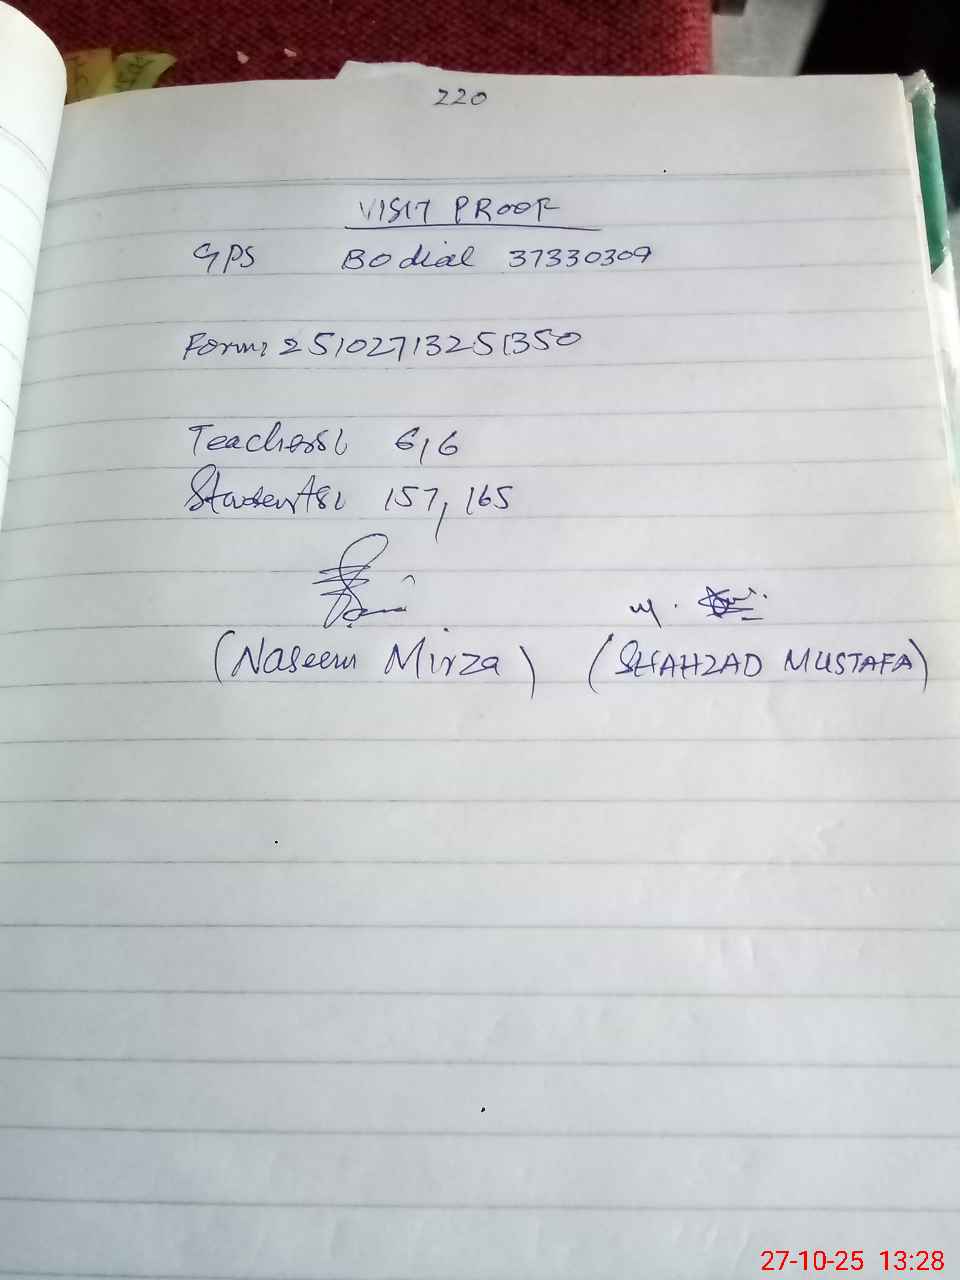 220
VISIT PROOF
GPS BO dial 37330309
Form: 25102713251350
Teachers: 6, 6
Students: 157, 165
(Naseem Mirza) (SHAHZAD MUSTAFA)
27-10-25 13:28